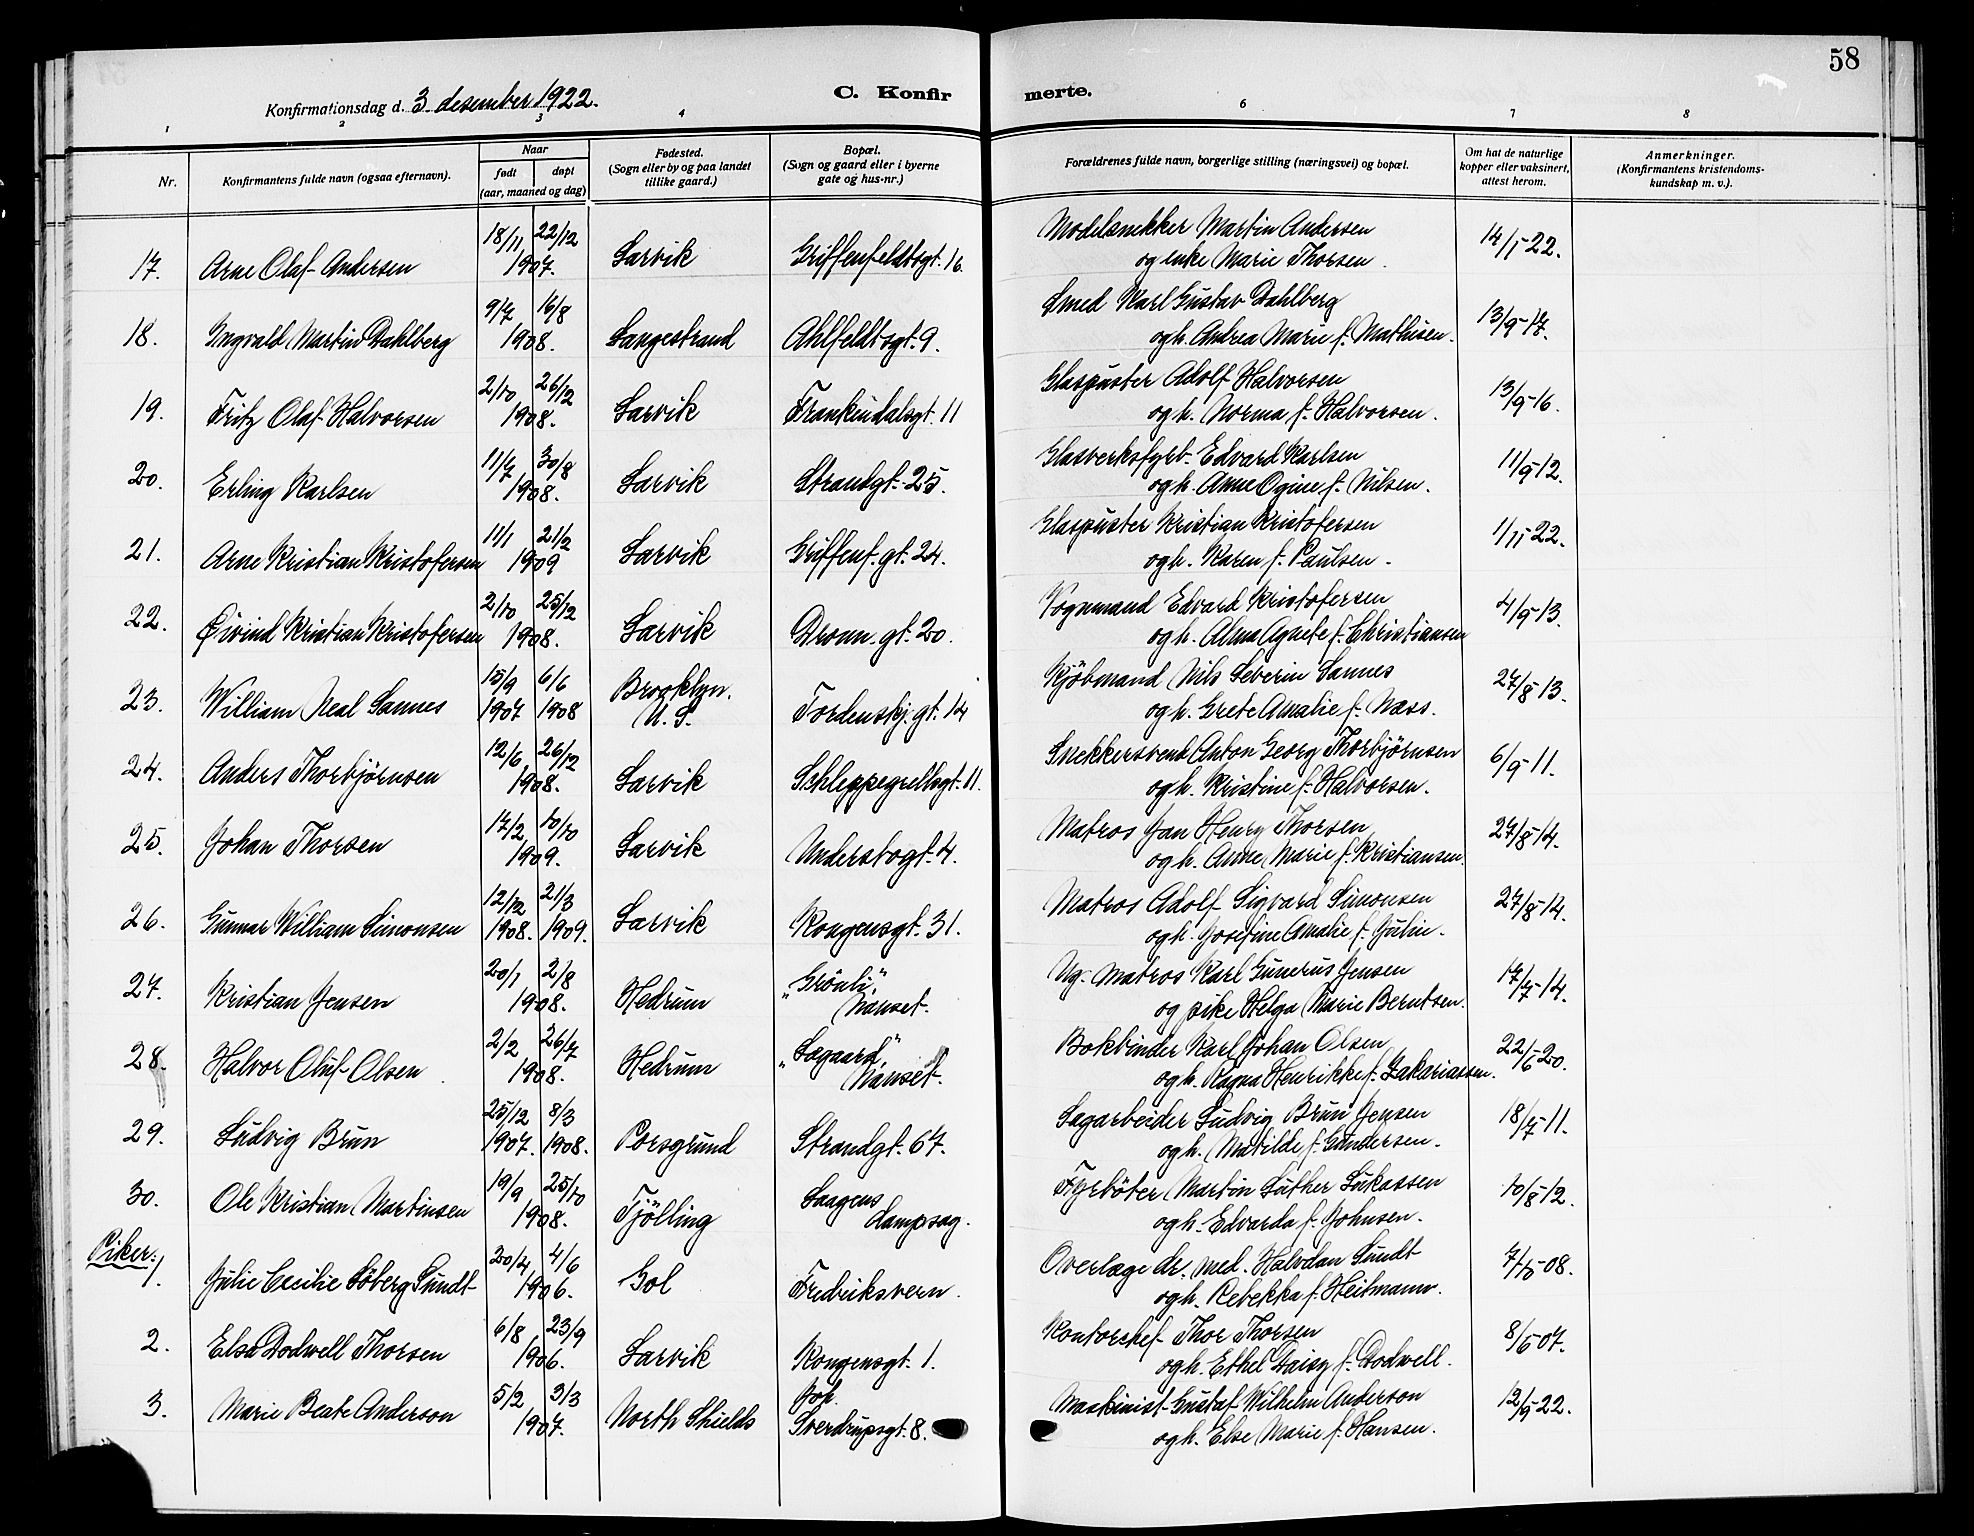 58
Konfirmationsdag d. 3. desember 1922.
C. Konfir
merte.
1 2 3 4 6 7 8
Nr.
Konfirmantens fulde navn (ogsaa efternavn).
Naar
født døpt
(aar, maaned og dag)
Fødested.
(Sogn eller by og paa landet
tillike gaard.)
Bopæl.
(Sogn og gaard eller i byerne
gate og hus-nr.)
Forældrenes fulde navn, borgerlige stilling (næringsvei) og bopæl.
Om hat de naturlige
kopper eller vaksinert,
attest herom.
Anmerkninger.
(Konfirmantens kristendoms-
kundskap m. v.).
18/11 22/12 Modelsnekker Martin Andersen
17. Arne Olaf Andersen 1907. Larvik Griffenfeldtsgt. 16. og enke Marie Thorsen. 14/1-22.
9/7 16/8 Smed Karl Gustav Dahlberg
18. Ingvald Martin Dahlberg 1908. Langestrand Ahlfeldtsgt. 9. og h. Andrea Marie f. Mathisen. 13/9-17.
2/10 26/12 Glaspuster Adolf Halvorsen
19. Fritz Olaf Halvorsen 1908. Larvik Frankendalsgt. 11 og h. Norma f. Halvorsen. 13/9-16.
11/7 30/8 Glasverksfyrb. Edvard Karlsen
20. Erling Karlsen 1908. Larvik Strandgt. 25. og h. Anne Ogine f. Nilsen. 11/9-12.
11/1 21/2 Glaspuster Kristian Kristofersen
21. Arne Kristian Kristofersen 1909 Larvik Griffenf. gt. 24. og h. Karen f. Paulsen. 1/11-22.
2/10 25/12 Vognmand Edvard Kristofersen
22. Øivind Kristian Kristofersen 1908. Larvik Dronn. gt. 20. og h. Alma Agnete f. Christiansen 4/9-13.
15/9 6/6 Brooklyn. Kjöbmand Nils Severin Sannes
23. William Neal Sannes 1907 1908 U. S. Tordenskj. gt. 14 og h. Grete Amalie f. Næss. 27/8-13.
12/6 26/12 Snekkersvend Anton Georg Thorbjørnsen
24. Anders Thorbjørnsen 1908. Larvik Schleppegrellsgt. 11. og h. Kristine f. Halvorsen. 6/9-11.
17/2 10/10 Matros Jan Henry Thorsen
25. Johan Thorsen 1909. Larvik Understogt. 4. og h. Anne Marie f. Kristiansen. 27/8-14.
12/12 21/3 Matros Adolf Sigvard Simonsen
26. Gunnar William Simonsen 1908. 1909. Larvik Kongensgt. 31. og h. Josefine Amalie f. Julin. 27/8-14.
20/1 2/8 "Grönli", Ug. matros Karl Gunerus Jensen
27. Kristian Jensen 1908. Hedrum Nanset. og pike Helga Marie Berntsen. 17/7-14.
2/2 26/7 "Søgaard", Bokbinder Karl Johan Olsen
28. Halvor Oluf Olsen 1908. Hedrum Nanset. og h. Ragna Henrikke f. Zakariassen. 22/6-20.
25/12 8/3 Sagarbeider Ludvig Brun Jensen
29. Ludvig Brun 1907. 1908. Porsgrund Strandgt. 67. og h. Matilde f. Gundersen. 18/7-11.
19/9 25/10 Laagens Fyrböter Martin Luther Lukassen
30. Ole Kristian Martinsen 1908. Tjölling dampsag. og h. Edvarda f. Johnsen. 10/8-12.
Piker:
20/4 4/6 Overlæge dr. med. Halvdan Sundt
1. Julie Cecilie Söberg Sundt 1906. Gol Fredriksvern. og h. Rebekka f. Heitmann. 7/10-08.
6/8 23/9 Kontorchef Thor Thorsen
2. Elsa Dodwell Thorsen 1906. Larvik Kongensgt. 1. og h. Ethel Daisy f. Dodwell. 8/6-07.
5/2 3/3 Joh. Maskinist Gustaf Wilhelm Anderson
3. Marie Beate Anderson 1907. North Shields Sverdrupsgt. 8. og h. Else Marie f. Hansen. 12/9-22.